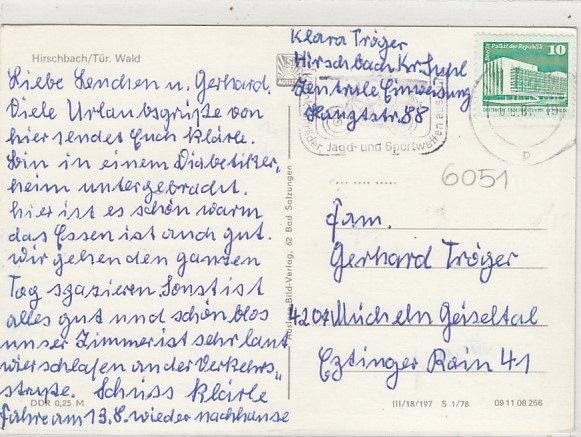 Hirschbach/Tür. Wald
Liebe Lenchen u. Gerhard.
Viele Urlaubsgrüße von
hier sendet Euch Klärle.
Bin in einem Diabetiker,
heim untergebracht.
hier ist es schön warm
das Essen ist auch gut.
wir gehen den ganzen
Tag spazieren. Sonst ist
alles gut und schön, blos
unser Zimmer ist sehr laut
wir schlafen an der Verkehrs,
straße. Schüss Klärle
fahre am 13.8. wieder nachhause
DDR 0,25 M
Klara Tröger
Hirschbach Kr. Suhl
Zentrale Einweisung
Hauptstr. 88
Palast der Republik
10
Jagd- und Sportwaffen aus
p
6051
Fam.
Gerhard Tröger
4207 Mücheln Geiseltal
Eptinger Rain 41
Bild-Verlag, 62 Bad Salzungen
III/18/197 S 1/78 09 11 08 256